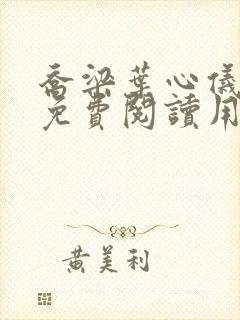 喬梁葉心儀
免費閱讀用
黃美利